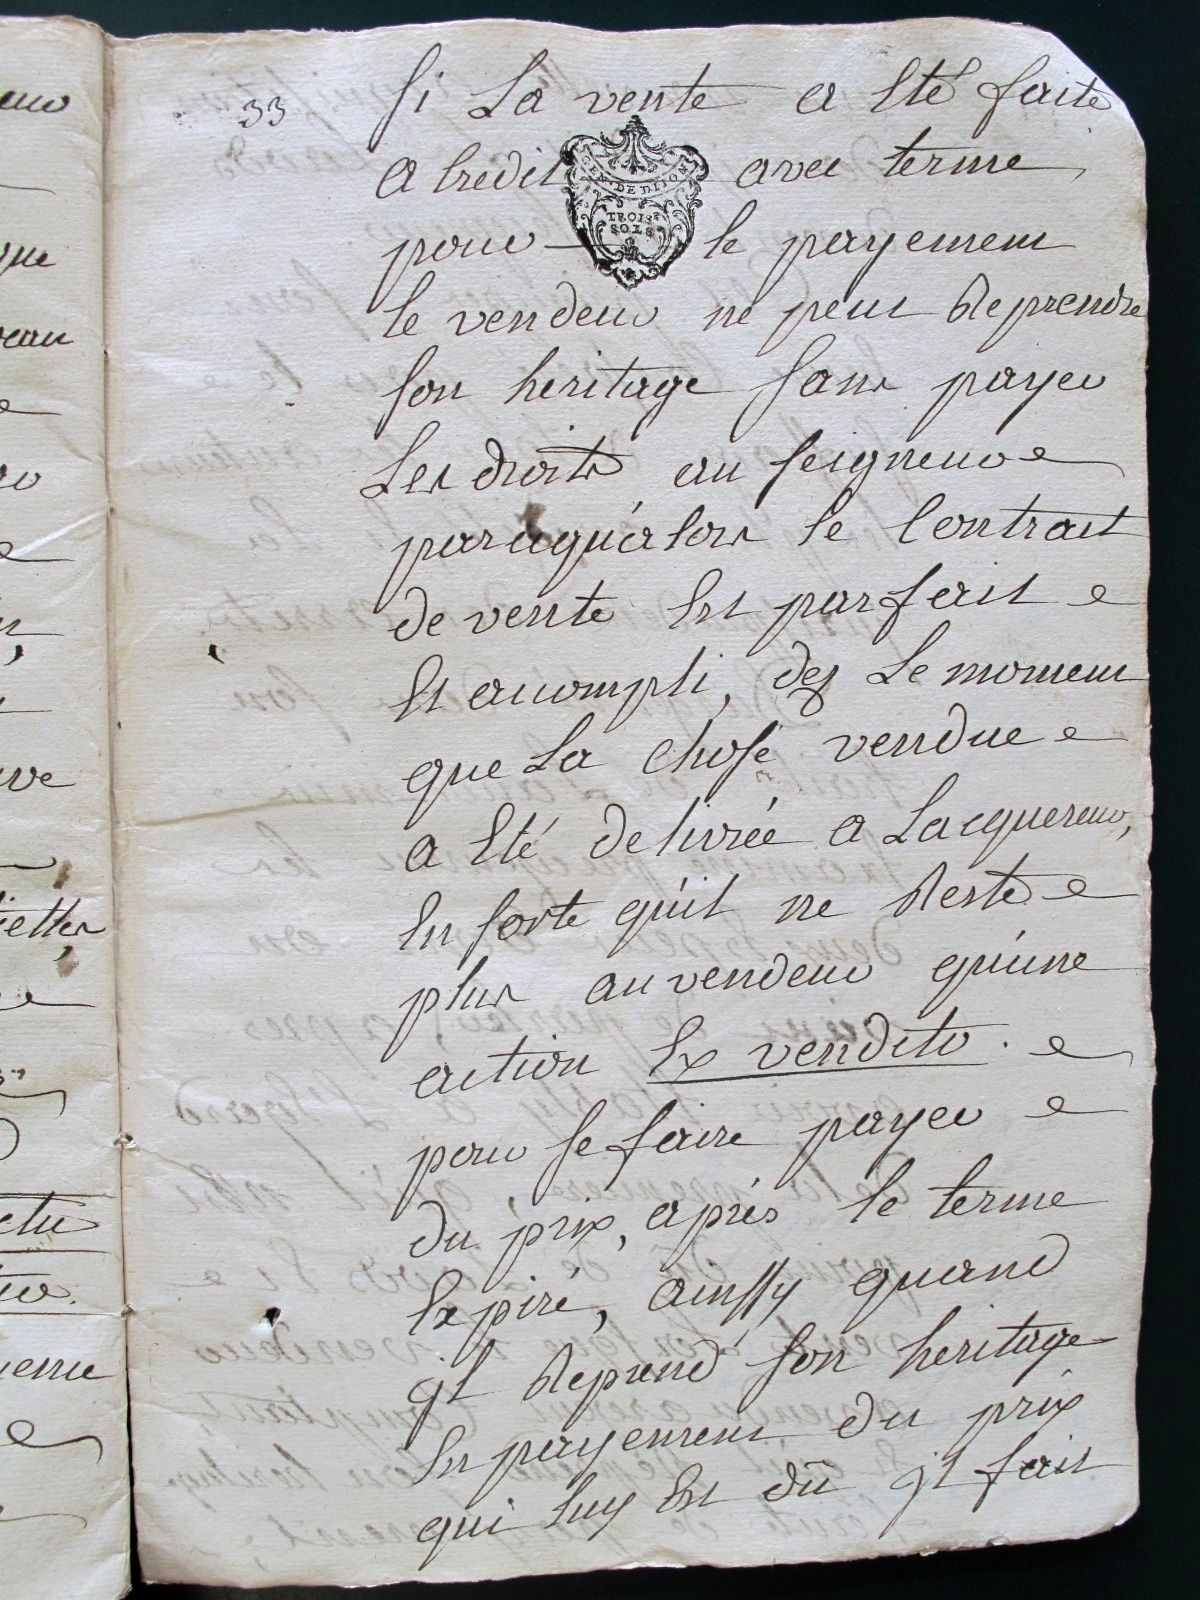 33
si La vente a Eté faite
a Credit avec terme,
GEN. DE DIJON
TROIS
SOLS
pour le payement
le vendeur ne peut Reprendre
son heritage sans payer
Les droits au seigneur
parcequ'alors le Contrait
de vente Est parfait
Et acompli, des Le moment
que La chose vendue
a Eté delivrée a Lacquereur,
En sorte qu'il ne Reste
plus au vendeur qu'une
action Ex vendito.
pour se faire payer
du prix, aprés le terme
Expiré, ainssy quand
jl Reprend son heritage
En payement du prix
qui luy Est dû jl fait